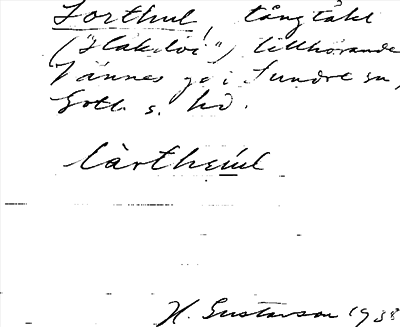 Forthul, tångtäkt
("Slakdoi") tillhörande
Vännes gd i Sundre sn,
Gotl. s. hd.
lärtheul
H. Gustavson 1938